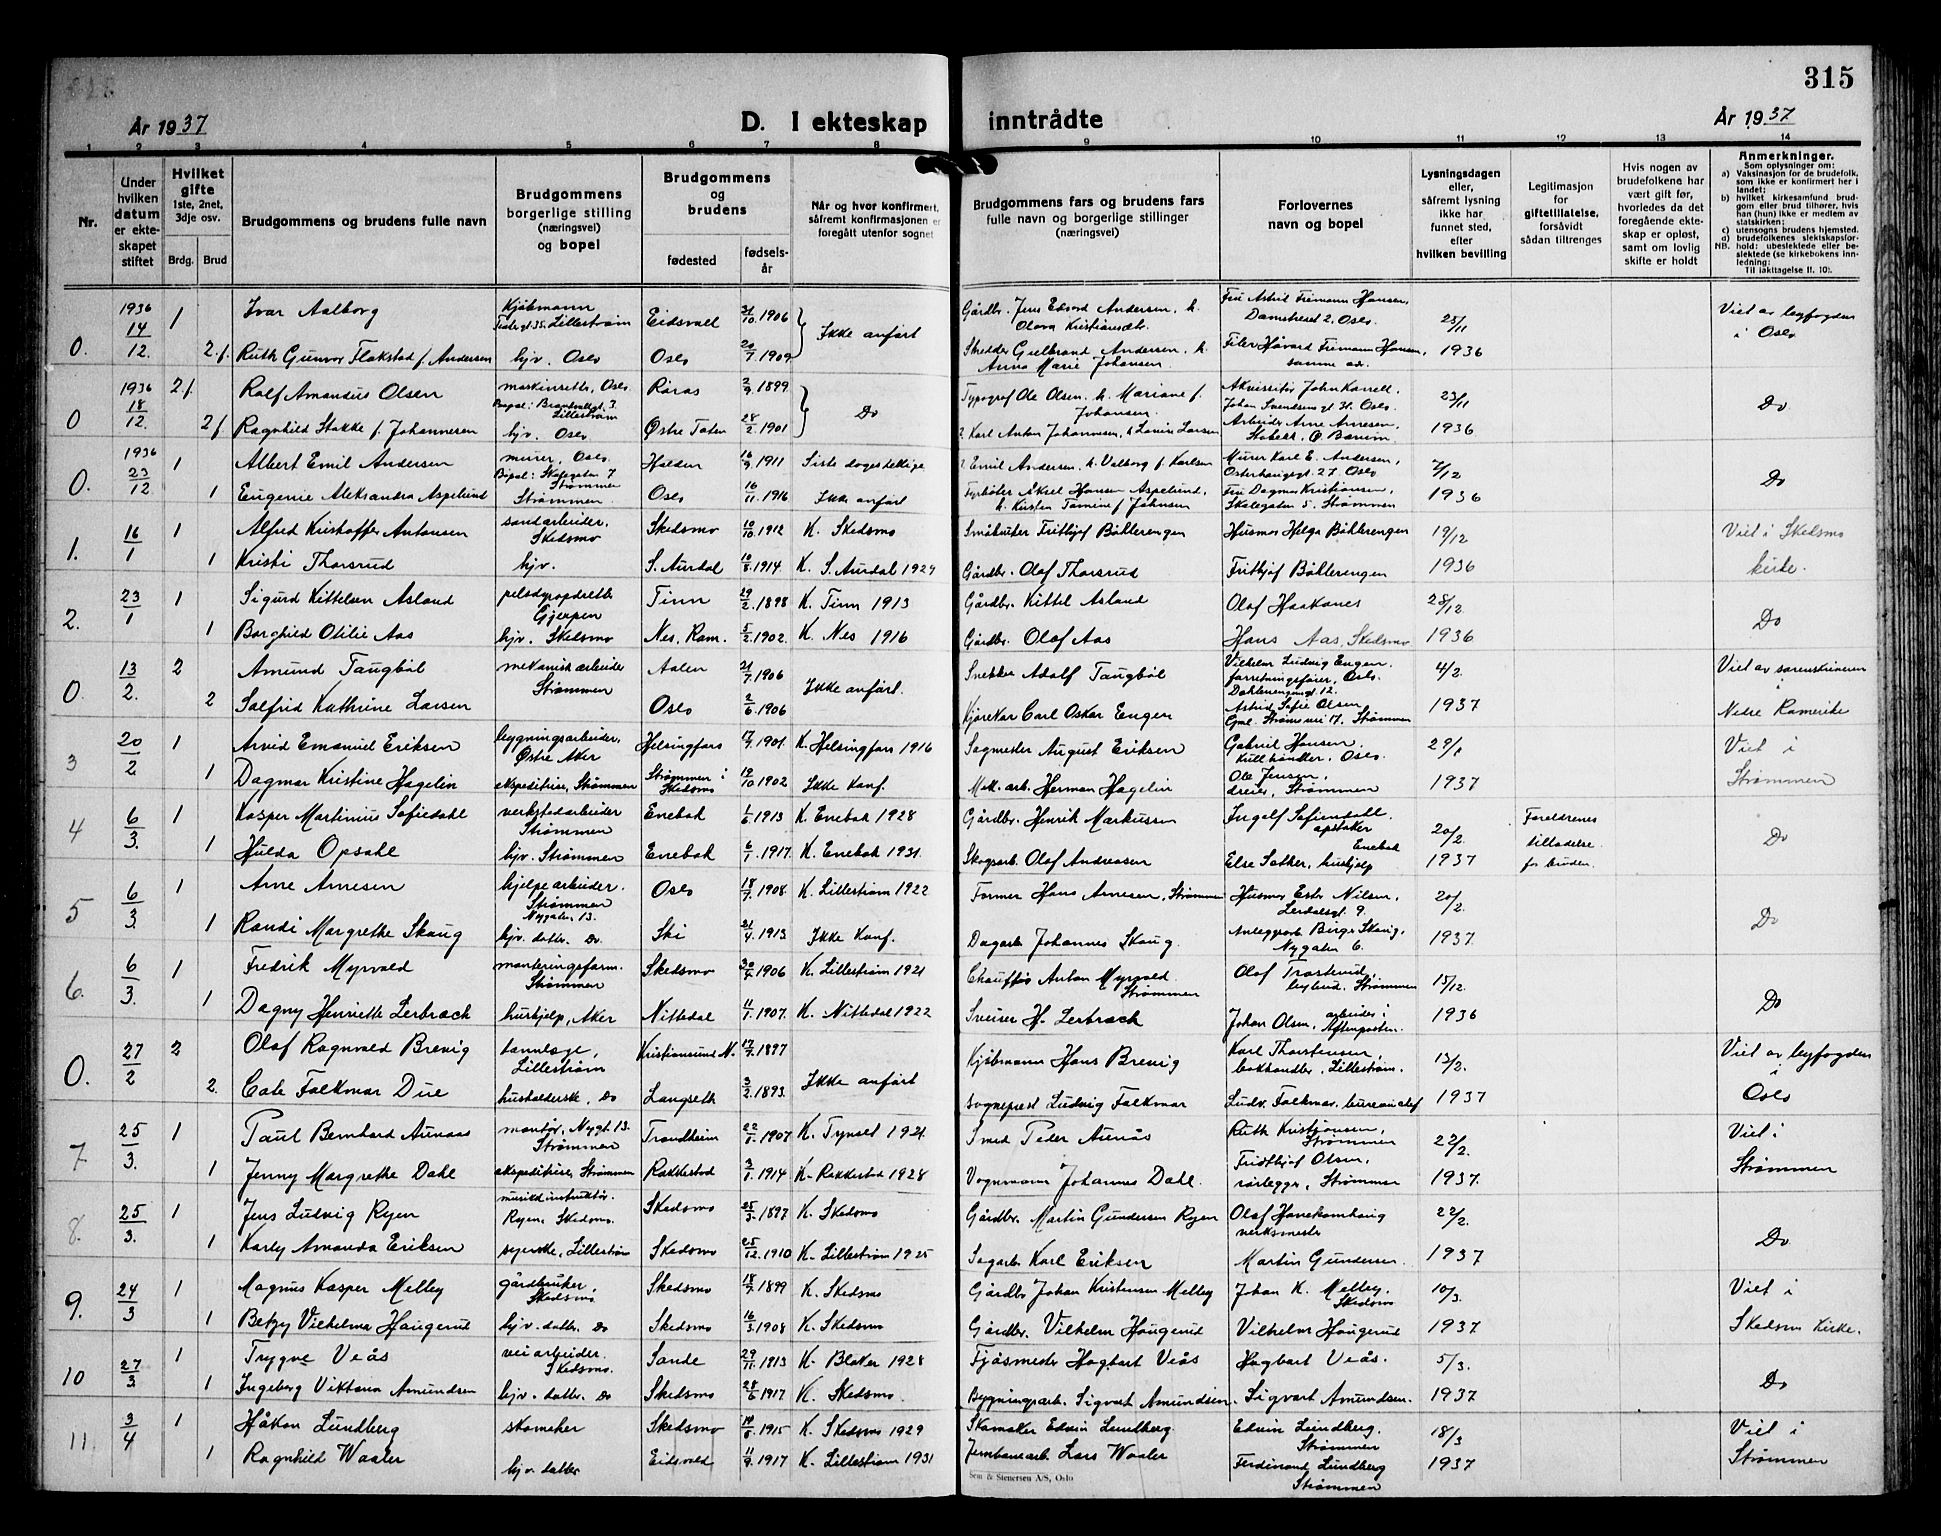 315
År 1937
D. I ekteskap inntrådte
År 1937
1 2 3 4 5 6 7 8 9 10 11 12 13 14
Nr.
Under hvilken datum er ekteskapet stiftet
Hvilket gifte 1ste, 2net, 3dje osv.
Brdg. Brud
Brudgommens og brudens fulle navn
Brudgommens borgerlige stilling (næringsvei) og bopel
Brudgommens og brudens
fødested
fødselsår
Når og hvor konfirmert, såfremt konfirmasjonen er foregått utenfor sognet
Brudgommens fars og brudens fars fulle navn og borgerlige stillinger (næringsvei)
Forlovernes navn og bopel
Lysningsdagen eller, såfremt lysning ikke har funnet sted, efter hvilken bevilling
Legitimasjon for giftetillatelse, forsåvidt sådan tiltrenges
Hvis nogen av brudefolkene har vært gift før, hvorledes da det foregående ekteskap er opløst, samt om lovlig skifte er holdt
Anmerkninger.
Som oplysninger om:
a) Vaksinasjon for de brudefolk, som ikke er konfirmert her i landet;
b) hvilket kirkesamfund brudgom eller brud tilhører, hvis han (hun) ikke er medlem av statskirken;
c) utensogns brudens hjemsted.
d) brudefolkenes slektskapsforhold: ubeslektede eller beslektede (se kirkebokens innledning:
NB.
Til iakttagelse II. 10).
0. 1936 14/12. 1 Ivar Aalborg Kjøbmann Lillestrøm Eidsvoll 21/10 1906 Ikke anført Gårdbr. Jens Edvard Andersen, h. Olava Kristiansdtr. Fru Astrid Fremann Hansen, Damstredet 2, Oslo. 25/11 1936 Viet av byfogden i Oslo
2 f. Ruth Gunvor Flakstad f. Andersen hjv. Oslo Oslo 20/7 1909 Skredder Gulbrand Andersen, h. Anna Marie Johansen. Håvard Fremann Hansen, samme adr.
0 1936 18/12. 2 f. Rolf Amandus Olsen maskinsetter, Oslo. Lillestrøm Røros 2/9 1899 Do Typograf Ole Olsen, h. Mariane f. Johansen. Akvisitør John Karrell, Johan Svendsens gt. 31. Oslo. 23/11 1936 Do
2 f. Ragnhild Stakke f. Johannesen hjv. Oslo Østre Toten 28/2 1901 Karl Anton Johannesen, h. Lovise Larsen Arbeider Arne Arnesen, Ø. Bærum
0. 1936 23/12 1 Albert Emil Andersen murer, Oslo. Bopel: Skolegaten 7 Strømmen Halden 16/9 1911 Siste dagers hellige Emil Andersen, h. Valborg f. Karlsen Murer Karl E. Andersen, Osterhausgt. 27. Oslo 7/12 1936 Do
1 Eugenie Aleksandra Aspelund Strømmen Oslo 16/11 1916 Ikke anført Fyrbøter Aksel Hansen Aspelund, h. Kirsten Tomine f. Johnsen Fru Dagmar Kristiansen, Skolegaten 5. Strømmen
1. 16/1 1 Alfred Kristoffer Antonsen sandarbeider, Skedsmo Skedsmo 10/10 1912 K. Skedsmo Småbruker Fritbjof Böhlerengen Husmor Helga Böhlerengen 19/12 1936 Viet i Skedsmo kirke.
1 Kristi Thorsrud hjv. S. Aurdal 10/8 1914. K. S. Aurdal 1929 Gårdbr. Olaf Thorsrud Fritbjof Böhlerengen
2. 23/1 1 Sigurd Kittelsen Asland pelsdyropdretter Gjerpen Tinn 29/2 1898 K. Tinn 1913 Gårdbr. Kittel Asland Olaf Haakanes 28/12 1936 Do
1 Borghild Otilie Aas hjv. Skedsmo Nes, Rom. 5/2 1902. K. Nes 1916 Gårdbr. Olaf Aas Hans Aas, Skedsmo
0. 13/2. 2 Amund Taugbøl mekanisk arbeider Strømmen Aalen 21/7 1906 Ikke anført. Snekker Adolf Taugbøl Vilhelm Ludvig Engen, forretningsfører, Oslo. Dahlenenggt. 12. 4/2. 1937 Viet av sorenskriveren i Nedre Romerike
2 Solfrid Kathrine Larsen Oslo 2/6 1906 Kjørekar Carl Oskar Engen Astrid Sofie Olsen, Gml. Strømsvei 17. Strømmen
3 20/2 1 Arvid Emanuel Eriksen bygningsarbeider, Østre Aker Helsingfors 17/9 1901. K. Helsingfors 1916 Sagmester August Eriksen Gabriel Hansen, kullhandler, Oslo. 29/1 1937 Viet i Strømmen
1 Dagmar Kristine Hagelin ekspeditrise, Strømmen Strømmen i Skedsmo 12/10 1902 Ikke konf. Mek. arb. Herman Hagelin Ole Jensen, dreier, Strømmen
4 6/3. 1 Kasper Martinius Sofiedahl verkstedarbeider Strømmen Enebak 1/6 1913 K. Enebak 1928 Gårdbr. Henrik Markussen Ingolf Sofiendahl, opstaker Enebak 20/2. 1937 Foreldrenes tilladelse for bruden. Do
1 Hulda Opsahl hjv. Strømmen Enebak 6/1 1917. K. Enebak 1931. Skogsarb. Olaf Andreasen Else Sother, hushjelp
5 6/3. 1 Arne Arnesen hjelpearbeider. Strømmen Nygaten 13. Oslo 18/7 1908. K. Lillestrøm 1922 Former Hans Arnesen, Strømmen Husmor Ester Nilsen, Lerdalsgt. 9. 20/2. 1937. Do
1 Randi Margrethe Skaug hjv. datter. Do. Ski 21/4 1913 Ikke konf. Dagarb. Johannes Skaug. Anleggsarb. Birger Skaug, Nygaten 6.
6. 6/3. 1 Fredrik Myrvold monteringsform. Strømmen Skedsmo 30/4 1906 K. Lillestrøm 1921 Chauffør Anton Myrvold Strømmen Olaf Strømmen 15/12. 1936 Do
1 Dagny Henriette Lerbrock hushjelp, Aker Nittedal 11/1 1907. K. Nittedal 1922 Sveiser H. Lerbrock Johan Olsen, arbeider i Aftenposten.
0. 27/2 2 Olaf Ragnvald Brevig tannlæge, Lillestrøm Kristiansund N. 17/7 1897 Ikke anført Kjøbmann Hans Brevig Karl Thorstensen, bokhandler, Lillestrøm. 13/2. 1937 Viet av byfogden i Oslo
2. Cate Falkmar Due husholderske, Do Langseth 3/2 1893. Sogneprest Ludvig Falkmar Ludv. Falkmar, bureauchef
7. 25/3. 1 Paul Bernhard Aunaas montør, Nygt. 13. Strømmen Trondheim 22/1 1907 K. Tynset 1921. Smed Peder Aunås Ruth Kristiansen, Strømmen 22/2. 1937. Viet i Strømmen
1 Jenny Margrethe Dahl ekspeditrise, Strømmen Rakkestad 3/1 1914 K. Rakkestad 1928 Vognmann Johannes Dahl. Fridtbjof Olsen, rørlegger, Strømmen
8. 25/3. 1 Jens Ludvig Ryen musikkinstruktør. Ryen, Skedsmo. Skedsmo 25/3 1897 K. Skedsmo Gårdbr. Martin Gundersen Ryen Olaf Hanekamhaug verksmester 22/2. 1937 Do
1 Karly Amanda Eriksen syerske, Lillestrøm Skedsmo 25/12 1910 K. Lillestrøm 1925 Sagarb. Karl Eriksen Martin Gundersen.
9. 24/3 1 Magnus Kasper Melley gårdbruker, Skedsmo Skedsmo 18/7 1899 K. Skedsmo Gårdbr. Johan Kristensen Melley Johan K. Melley, Skedsmo 10/3. 1937. Viet i Skedsmo Kirke.
1 Betzy Vilhelma Haugerud hjv. datter. Do Skedsmo 16/3 1908 K. Skedsmo Gårdbr. Vilhelm Haugerud Vilhelm Haugerud
10 27/3. 1 Trygve Veås veiarbeider. Skedsmo. Sande 29/11 1913 K. Blaker 1928 Fjøsmester Hagbart Veås Hagbart Veås. 5/3. 1937. Do
1 Ingeborg Viktoria Amundsen hjv. datter. Do Skedsmo 28/6 1917 K. Skedsmo Bygningsarb. Sigvart Amundsen. Sigvart Amundsen.
11. 3/4 1 Håkon Lundberg skomaker Skedsmo 19/6 1915 K. Skedsmo 1929 Skomaker Edvin Lundberg. Edvin Lundberg, Strømmen 18/3 1937 Viet i Strømmen
1 Ragnhild Waaler hjv. datter Eidsvold 11/9 1917 K. Lillestrøm 1931 Jernbanearb. Lars Waaler Ferdinand Lundberg Strømmen
Sem & Stenersen A/S, Oslo